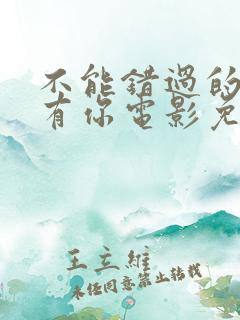 不能错过的
有你电影免
王立维
未经同意禁止转载